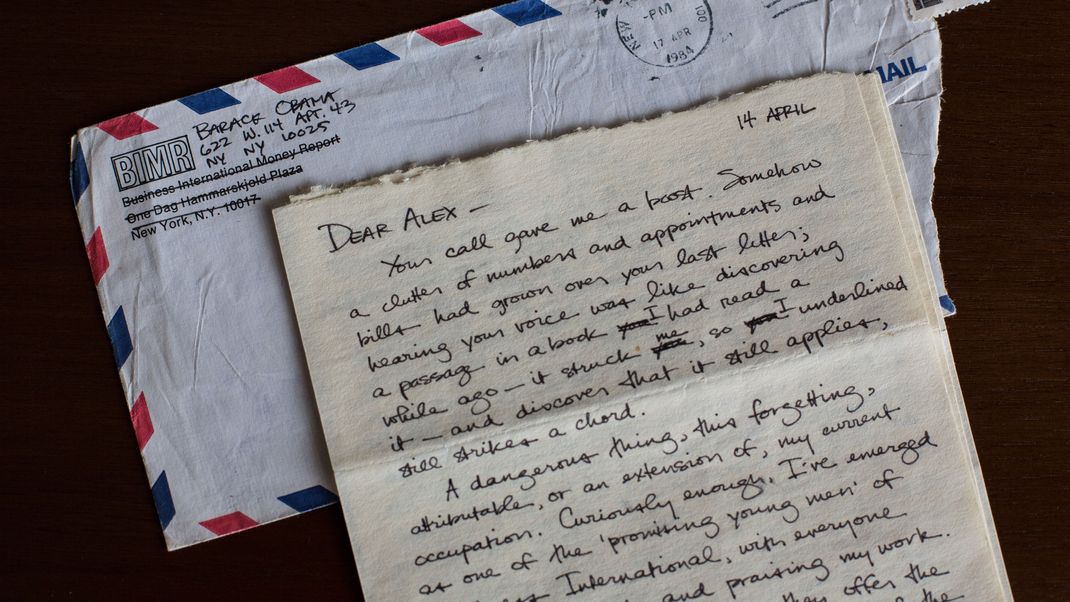 BARACK OBAMA
622 W. 114 APT. 43
NY NY 10025
BIMR
Business International Money Report
One Dag Hammarskjold Plaza
New York, N.Y. 10017
NEW
-PM
17 APR
1984
MAIL
14 APRIL
DEAR ALEX —
Your call gave me a boost. Somehow
a clutter of numbers and appointments and
bills had grown over your last letter;
hearing your voice was like discovering
a passage in a book I had read a
while ago — it struck me, so I underlined
it — and discover that it still applies,
still strikes a chord.
A dangerous thing, this forgetting,
attributable, or an extension of, my current
occupation. Curiously enough, I've emerged
as one of the 'promising young men' of
International, with everyone
and praising my work.
they offer the
the